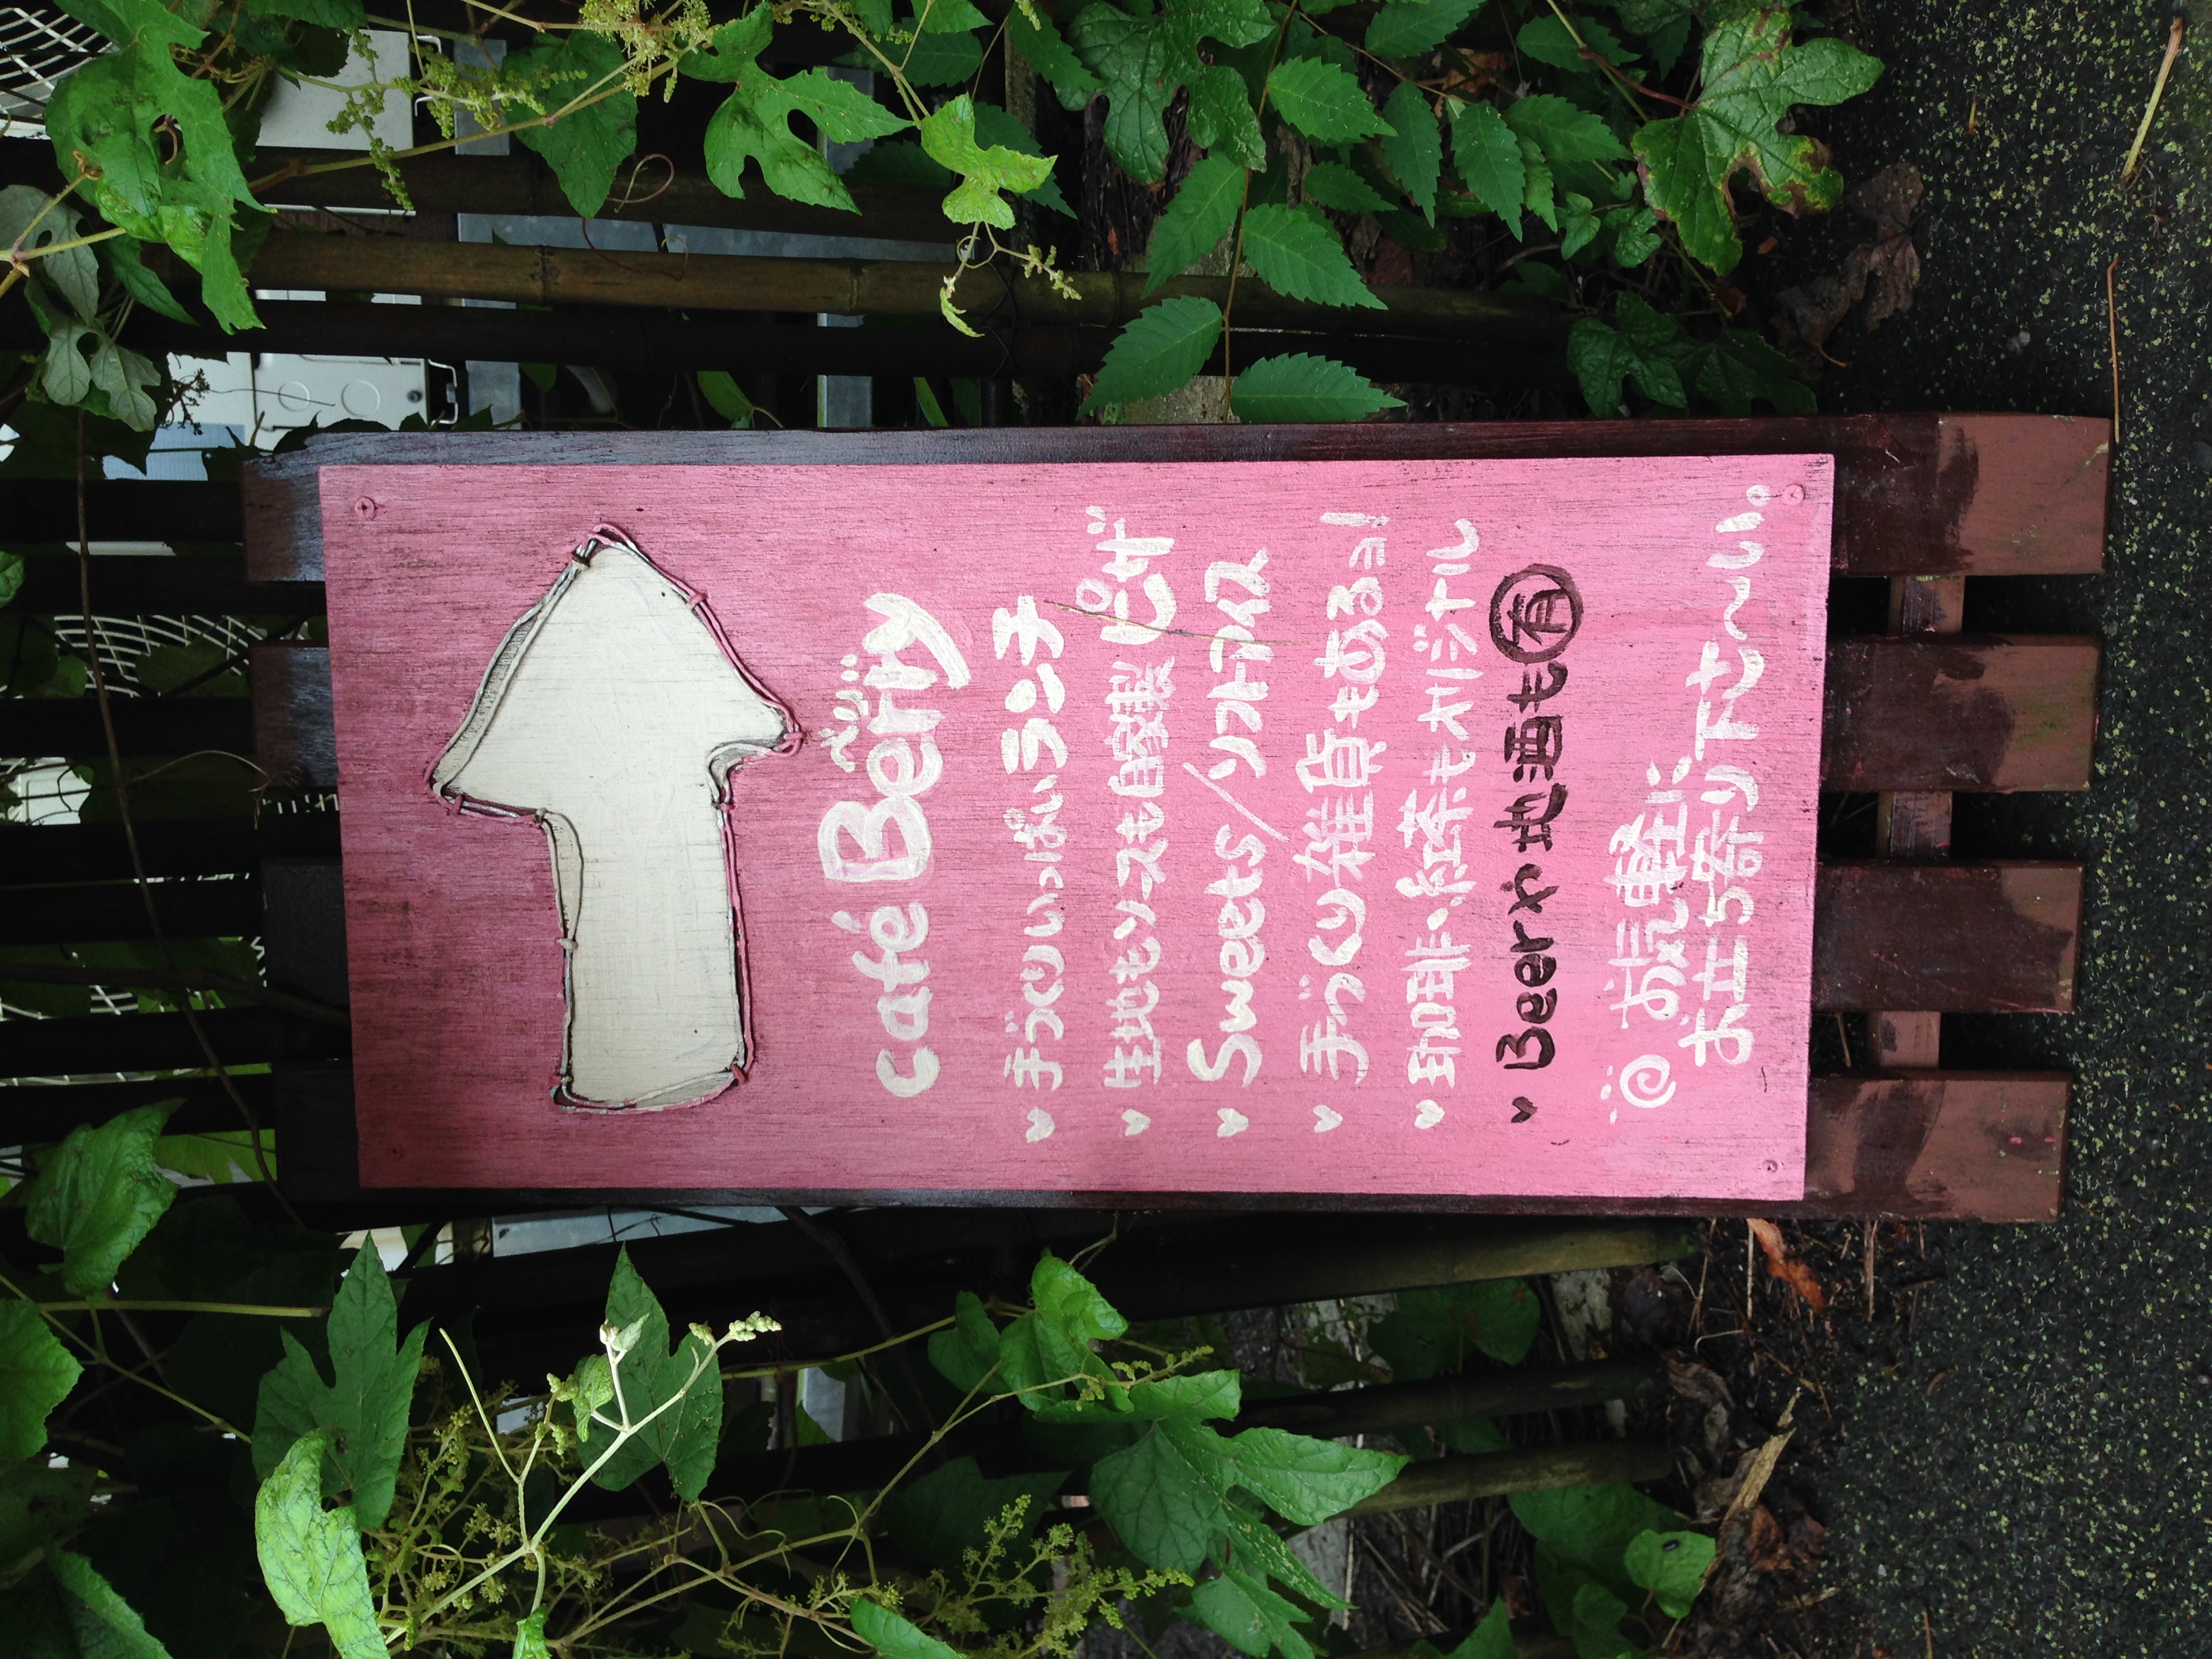 café Berry
ベリー
♥ 手づくりいっぱいランチ
♥ 生地もソースも自家製ピザ
♥ Sweets/ソフトアイス
♥ 手づくり雑貨もあるョ!
♥ 珈琲・紅茶もオリジナル
♥ Beerや地酒も㊒
お気軽に
お立ち寄り下さ〜い。